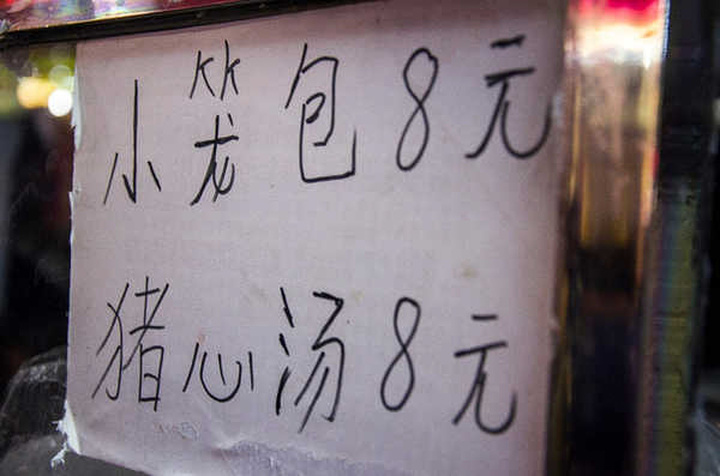 小笼包8元
猪心汤8元